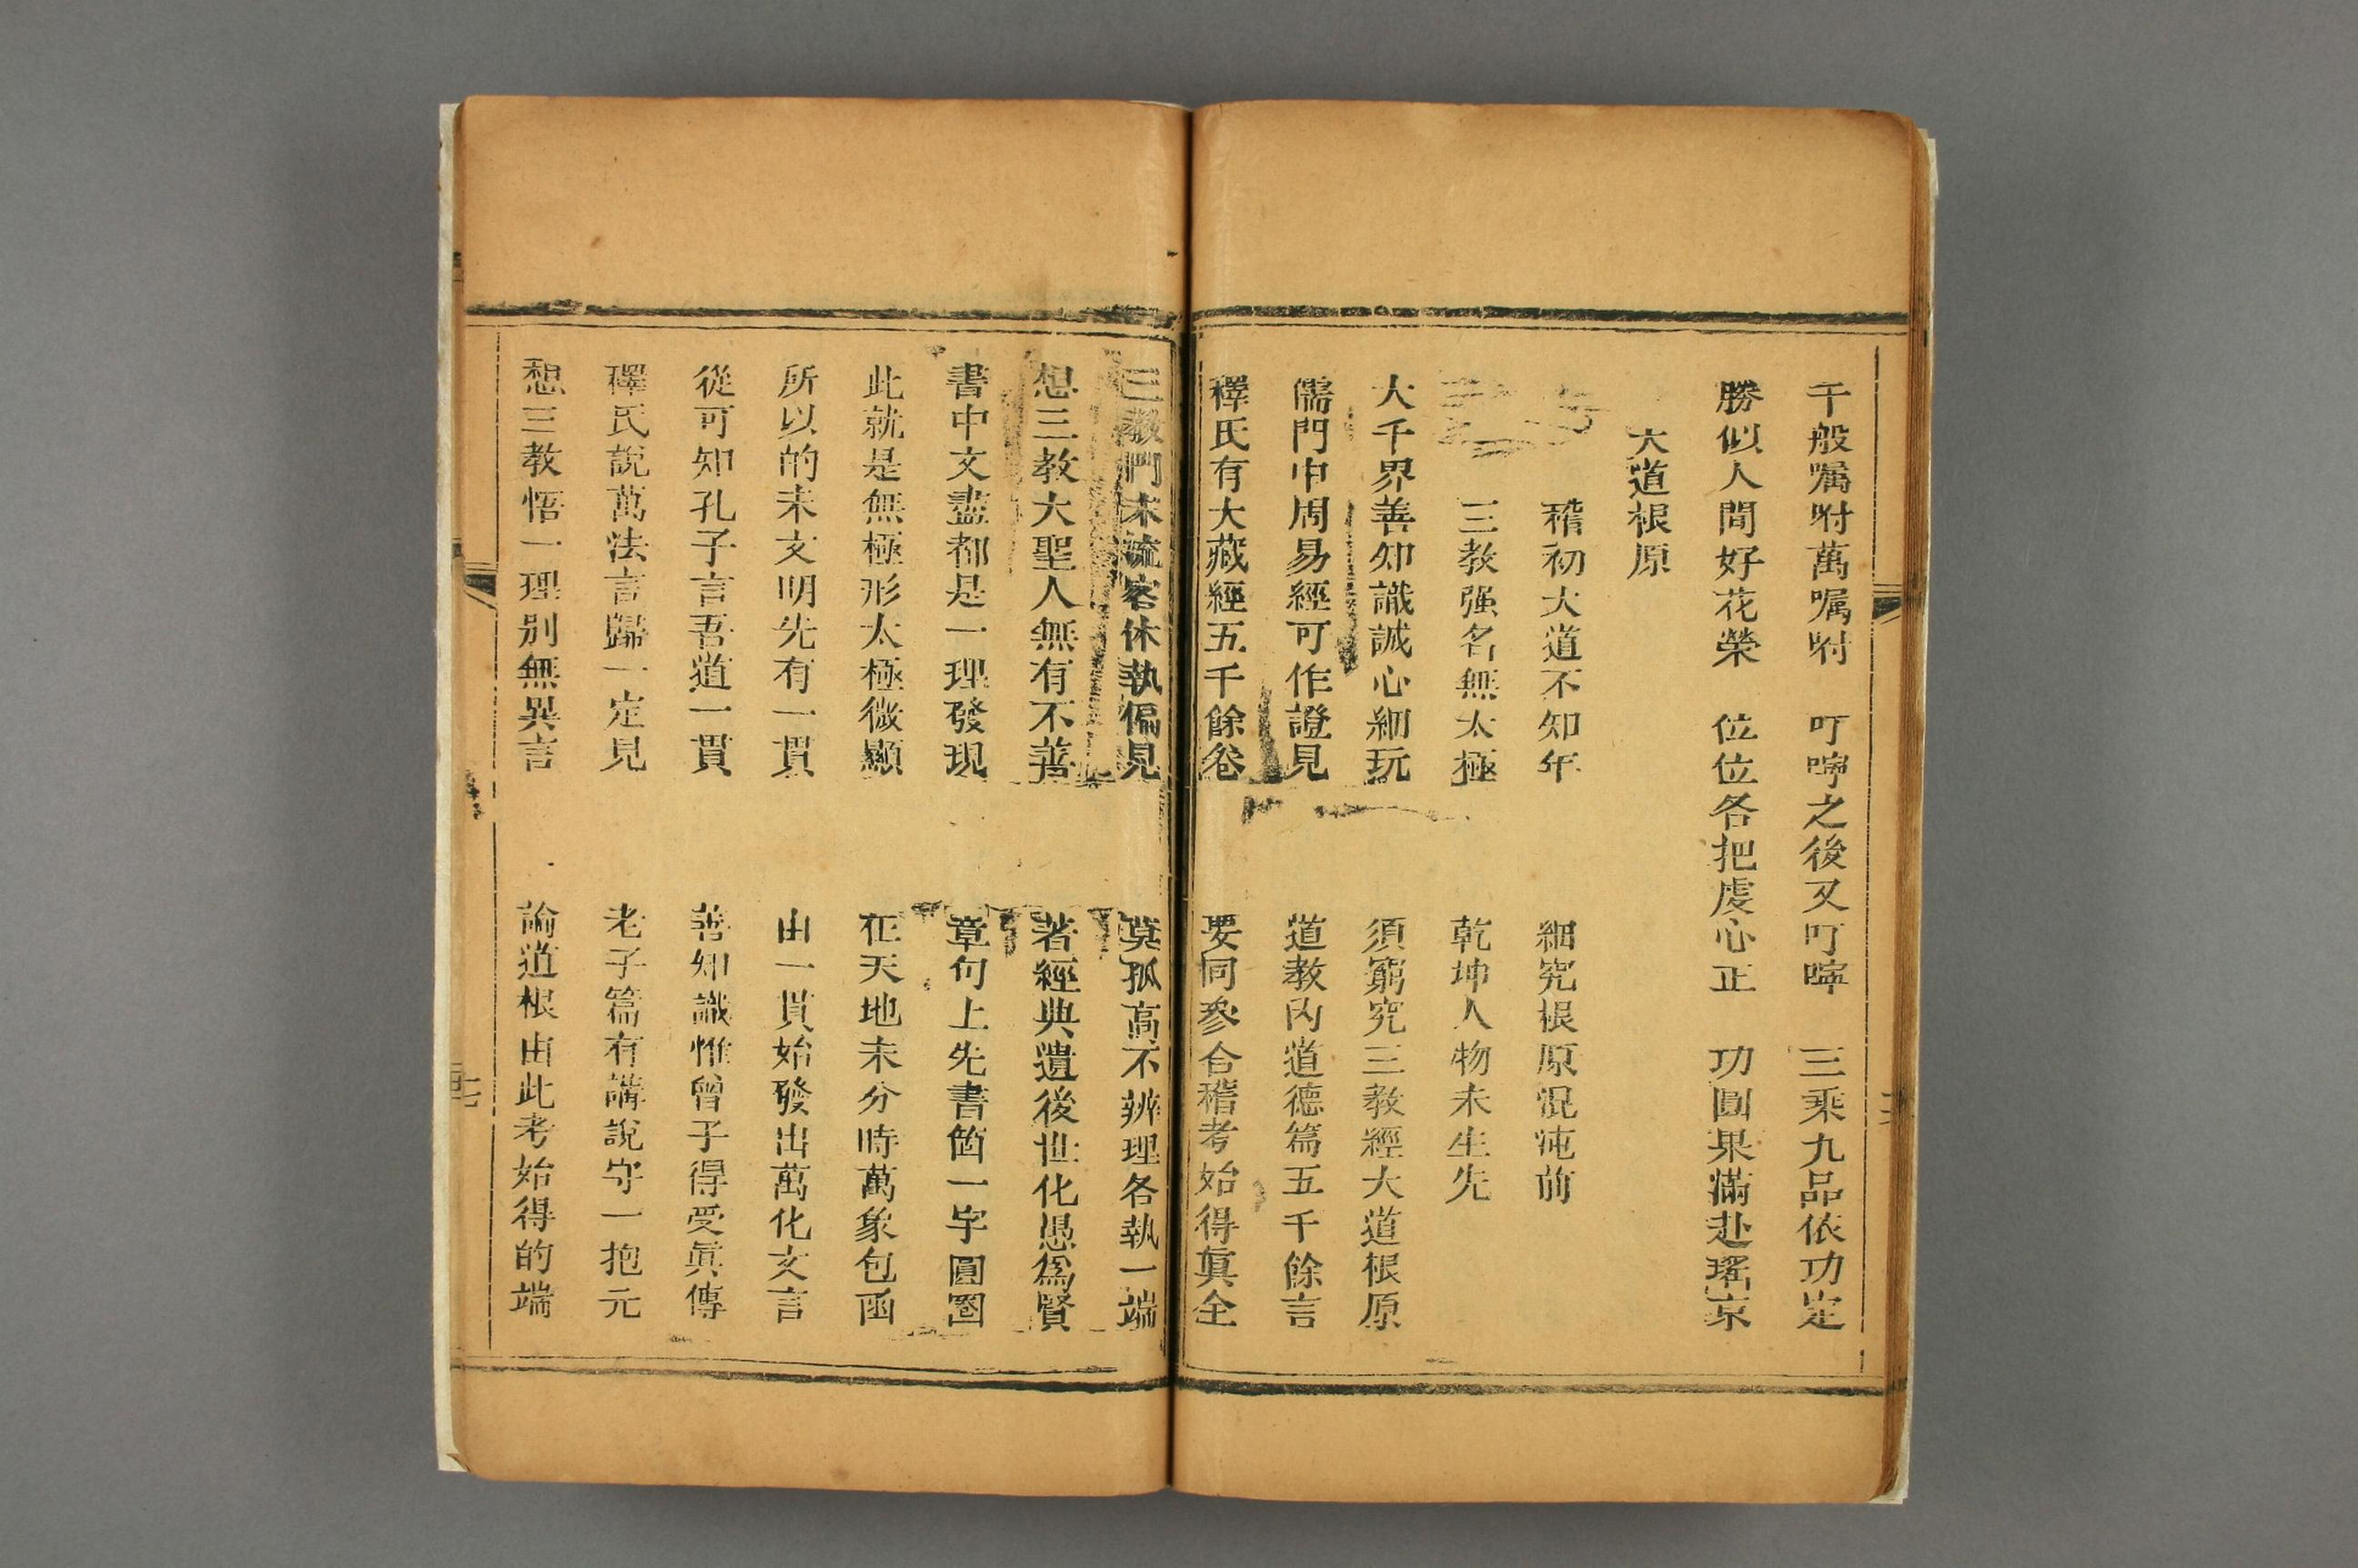 千般嘱咐萬嘱咐　叮嚀之後又叮嚀　三乘九品依功定
勝似人間好花榮　位位各把虔心正　功圓果滿赴瑤京
大道根原
稽初大道不知年　細究根原混沌前
三教强名無太極　乾坤人物未生先
大千界善知識誠心細玩　須窮究三教經大道根原
儒門中周易經可作證見　道教內道德篇五千餘言
釋氏有大藏經五千餘卷　要同參合稽考始得眞全
三教門末流客休執偏見　莫孤高不辨理各執一端
想三教大聖人無有不善　著經典遺後世化愚爲賢
書中文盡都是一理發現　章句上先書箇一字圓圈
此就是無極形太極微顯　在天地未分時萬象包函
所以的未文明先有一貫　由一貫始發出萬化文言
從可知孔子言吾道一貫　善知識惟曾子得受眞傳
釋氏說萬法言歸一定見　老子篇有講說守一抱元
想三教悟一理別無異言　論道根由此考始得的端
十七